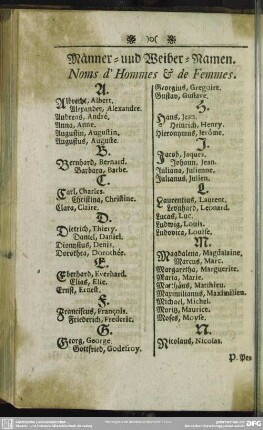 Männer- und Weiber-Namen.
Noms d' Hommes & de Femmes.
A.
Albrecht, Albert.
Alexander, Alexandre.
Andreas, André.
Anna, Anne.
Augustin, Augustin,
Augustus, Auguste.
B.
Bernhard, Bernard.
Barbara, Barbe.
C.
Carl, Charles.
Christina, Christine.
Clara, Claire.
D.
Dietrich, Thiery.
Daniel, Daniel.
Dionysius, Denis.
Dorothea, Dorothée.
E.
Eberhard, Everhard.
Elias, Elie.
Ernst, Ernest.
F.
Franciscus, François.
Friederich, Frederic.
G.
Georg, George
Gottfried, Godefroy.
Georgius, Gregoire.
Gustav, Gustave.
H.
Hans, Jean.
Heinrich, Henry.
Hieronymus, Jerôme.
J.
Jacob, Jaques.
Johann, Jean.
Juliana, Julienne.
Julianus, Julien.
L.
Laurentius, Laurent,
Leonhard, Leonard.
Lucas, Luc.
Ludwig, Louis.
Ludovica, Louise.
M.
Magdalena, Magdalaine,
Marcus, Marc.
Margaretha, Marguerite.
Maria, Marie.
Matthäus, Matthieu.
Maximilianus, Maximilien
Michael, Michel.
Moritz, Maurice.
Moses, Moyse.
N.
Nicolaus, Nicolas.